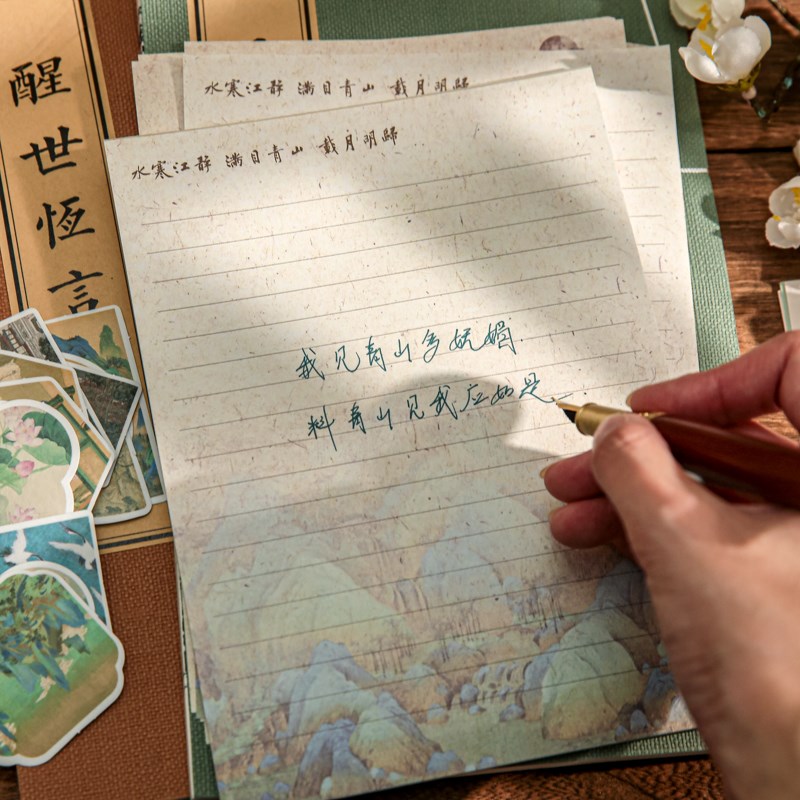 醒世恆言
水寒江靜 滿目青山 載月明歸
水寒江靜 滿目青山 載月明歸
我见青山多妩媚.
料青山见我应如是